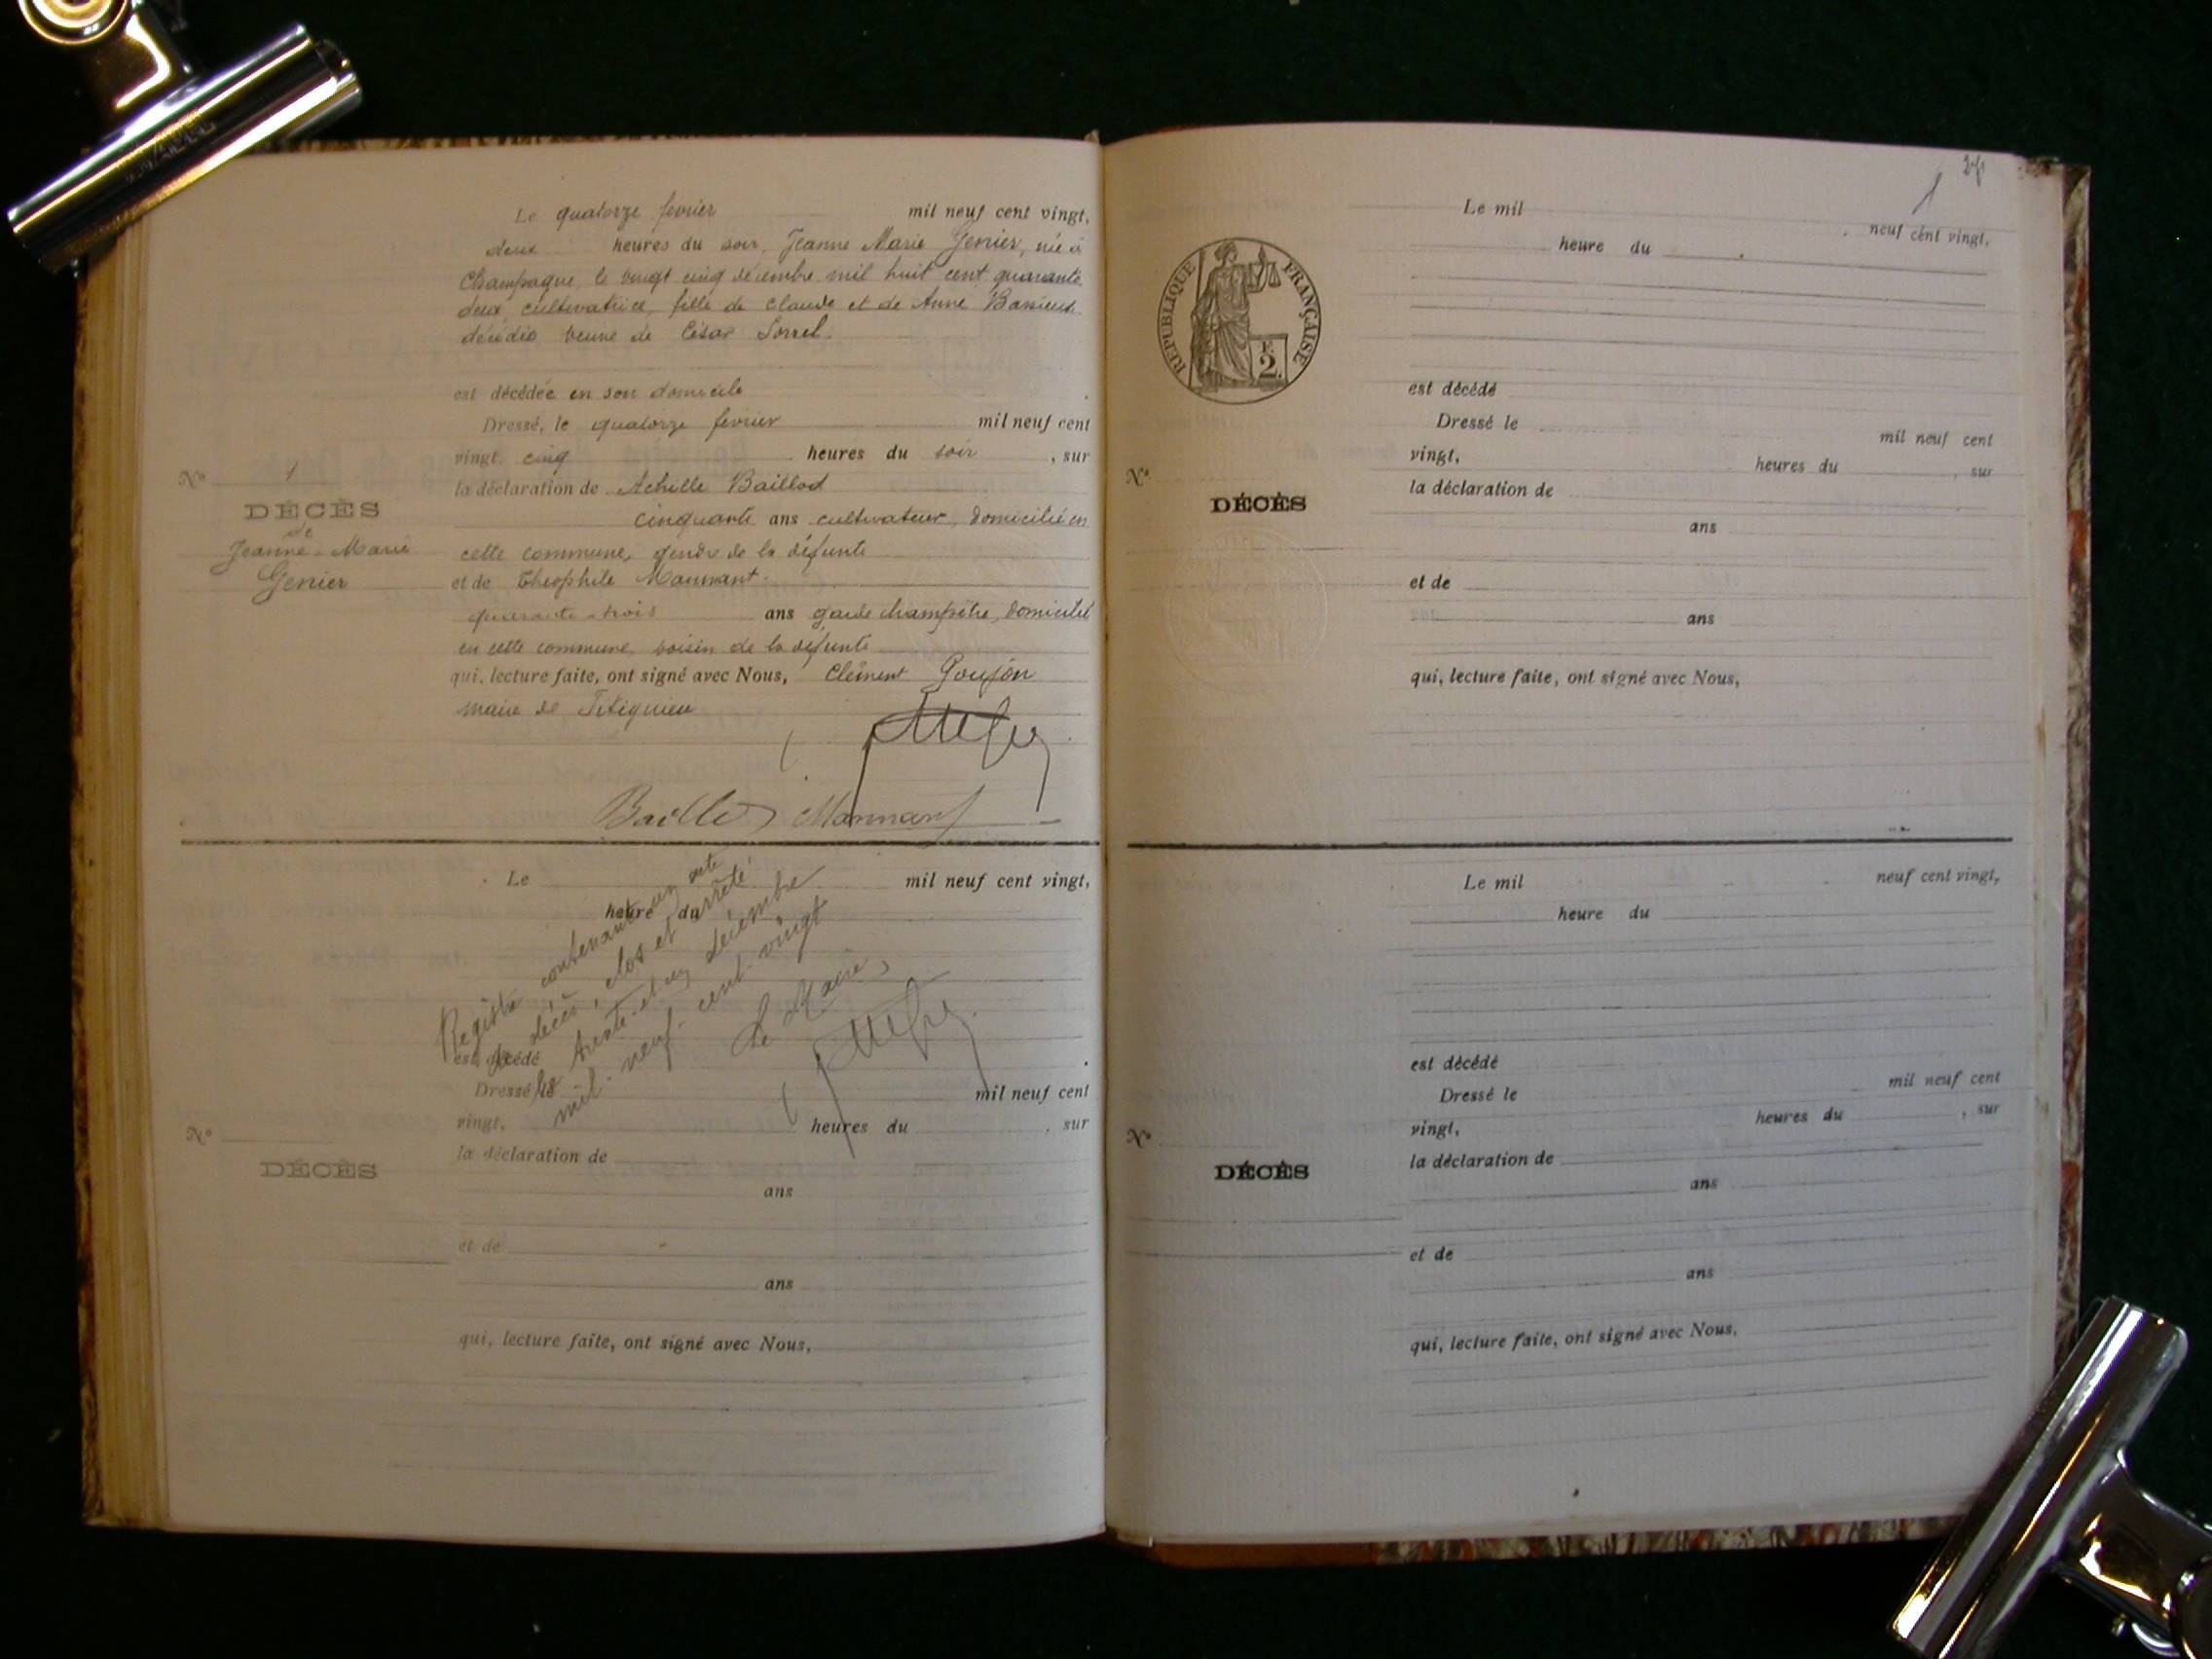 Le quatorze fevrier mil neuf cent vingt,
deux heures du soir, Jeanne Marie Genier, née à
Champagne, le vingt cinq décembre mil huit cent quarante
deux, cultivatrice, fille de Claude et de Anne
veuve de César Sorrel.
est décédée en son domicile
Dressé, le quatorze fevrier mil neuf cent
vingt, cinq heures du soir, sur
la déclaration de Achille Baillod
cinquante ans cultivateur, domicilié en
cette commune, gendre de la défunte
et de Théophile
quarante-trois ans garde champêtre, domicilié
en cette commune voisin de la défunte
qui, lecture faite, ont signé avec Nous, Clément Goujon
maire de
Nº 1
DÉCÈS
de
Jeanne-Marie
Genier
Le mil neuf cent vingt,
heure du
est décédé
Dressé le mil neuf cent
vingt, heures du , sur
la déclaration de
ans
et de
ans
qui, lecture faite, ont signé avec Nous,
Nº
DÉCÈS
Registre contenant un acte
de décès, clos et arrêté
le trente-et-un décembre
mil-neuf-cent-vingt
Le Maire,
Le mil neuf cent vingt,
heure du
RÉPUBLIQUE FRANÇAISE
F.
2
est décédé
Dressé le mil neuf cent
vingt, heures du , sur
la déclaration de
ans
et de
ans
qui, lecture faite, ont signé avec Nous,
Nº
DÉCÈS
Le mil neuf cent vingt,
heure du
est décédé
Dressé le mil neuf cent
vingt, heures du , sur
la déclaration de
ans
et de
ans
qui, lecture faite, ont signé avec Nous,
Nº
DÉCÈS